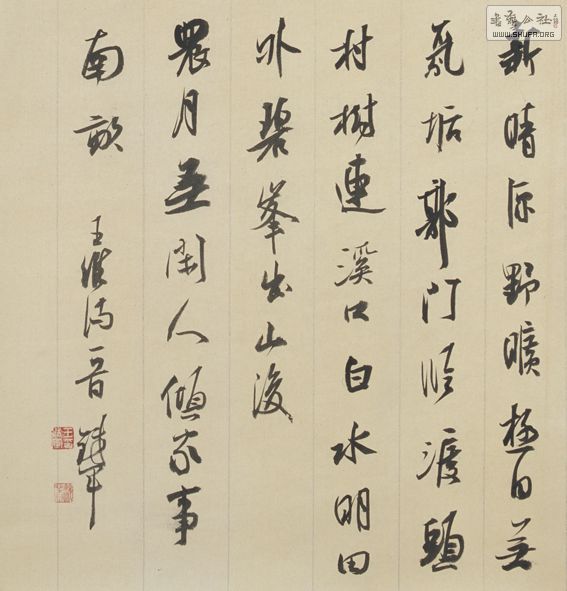 新晴原野曠極目无
氛垢郭門臨渡頭
村樹連溪口白水明田
外碧峯出山後
農月無閑人傾家事
南畝
王維詩一首
WWW.SHUFA.ORG